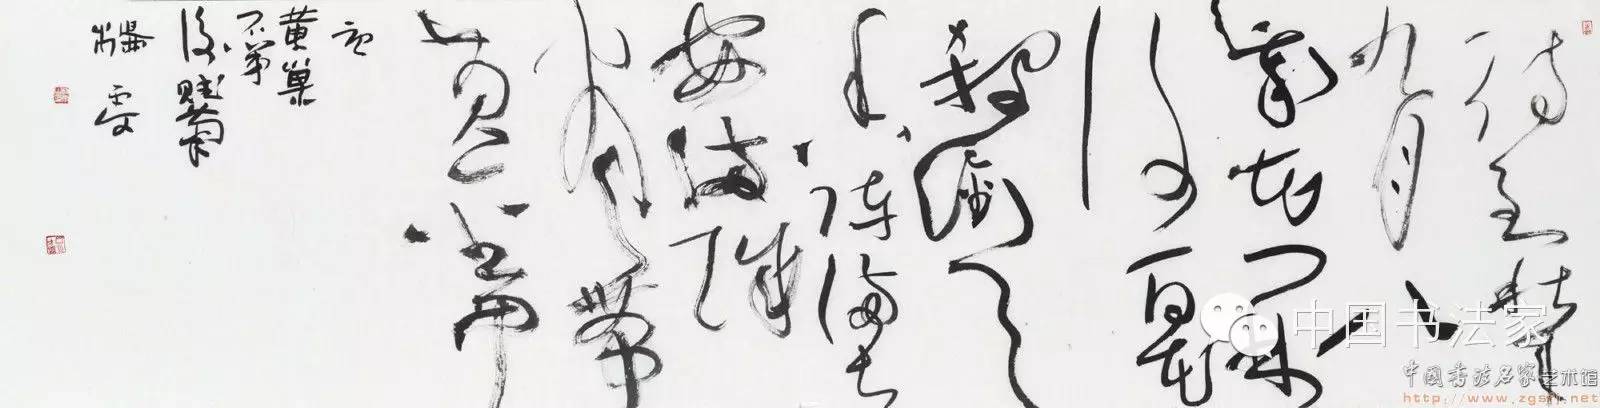 待到秋来
九月八
我花开
后百花
杀冲天
香阵透长
安满城
尽带
黄金甲
唐
黄巢
不第
后赋菊
中国书法家
中国书法名家艺术馆